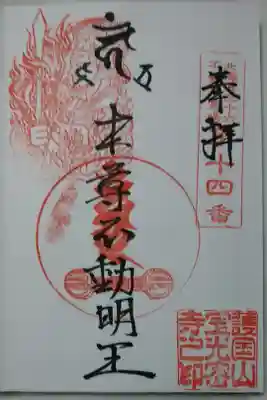 奉拝
十四番
本尊不動明王
護国山
宝光
寺之印